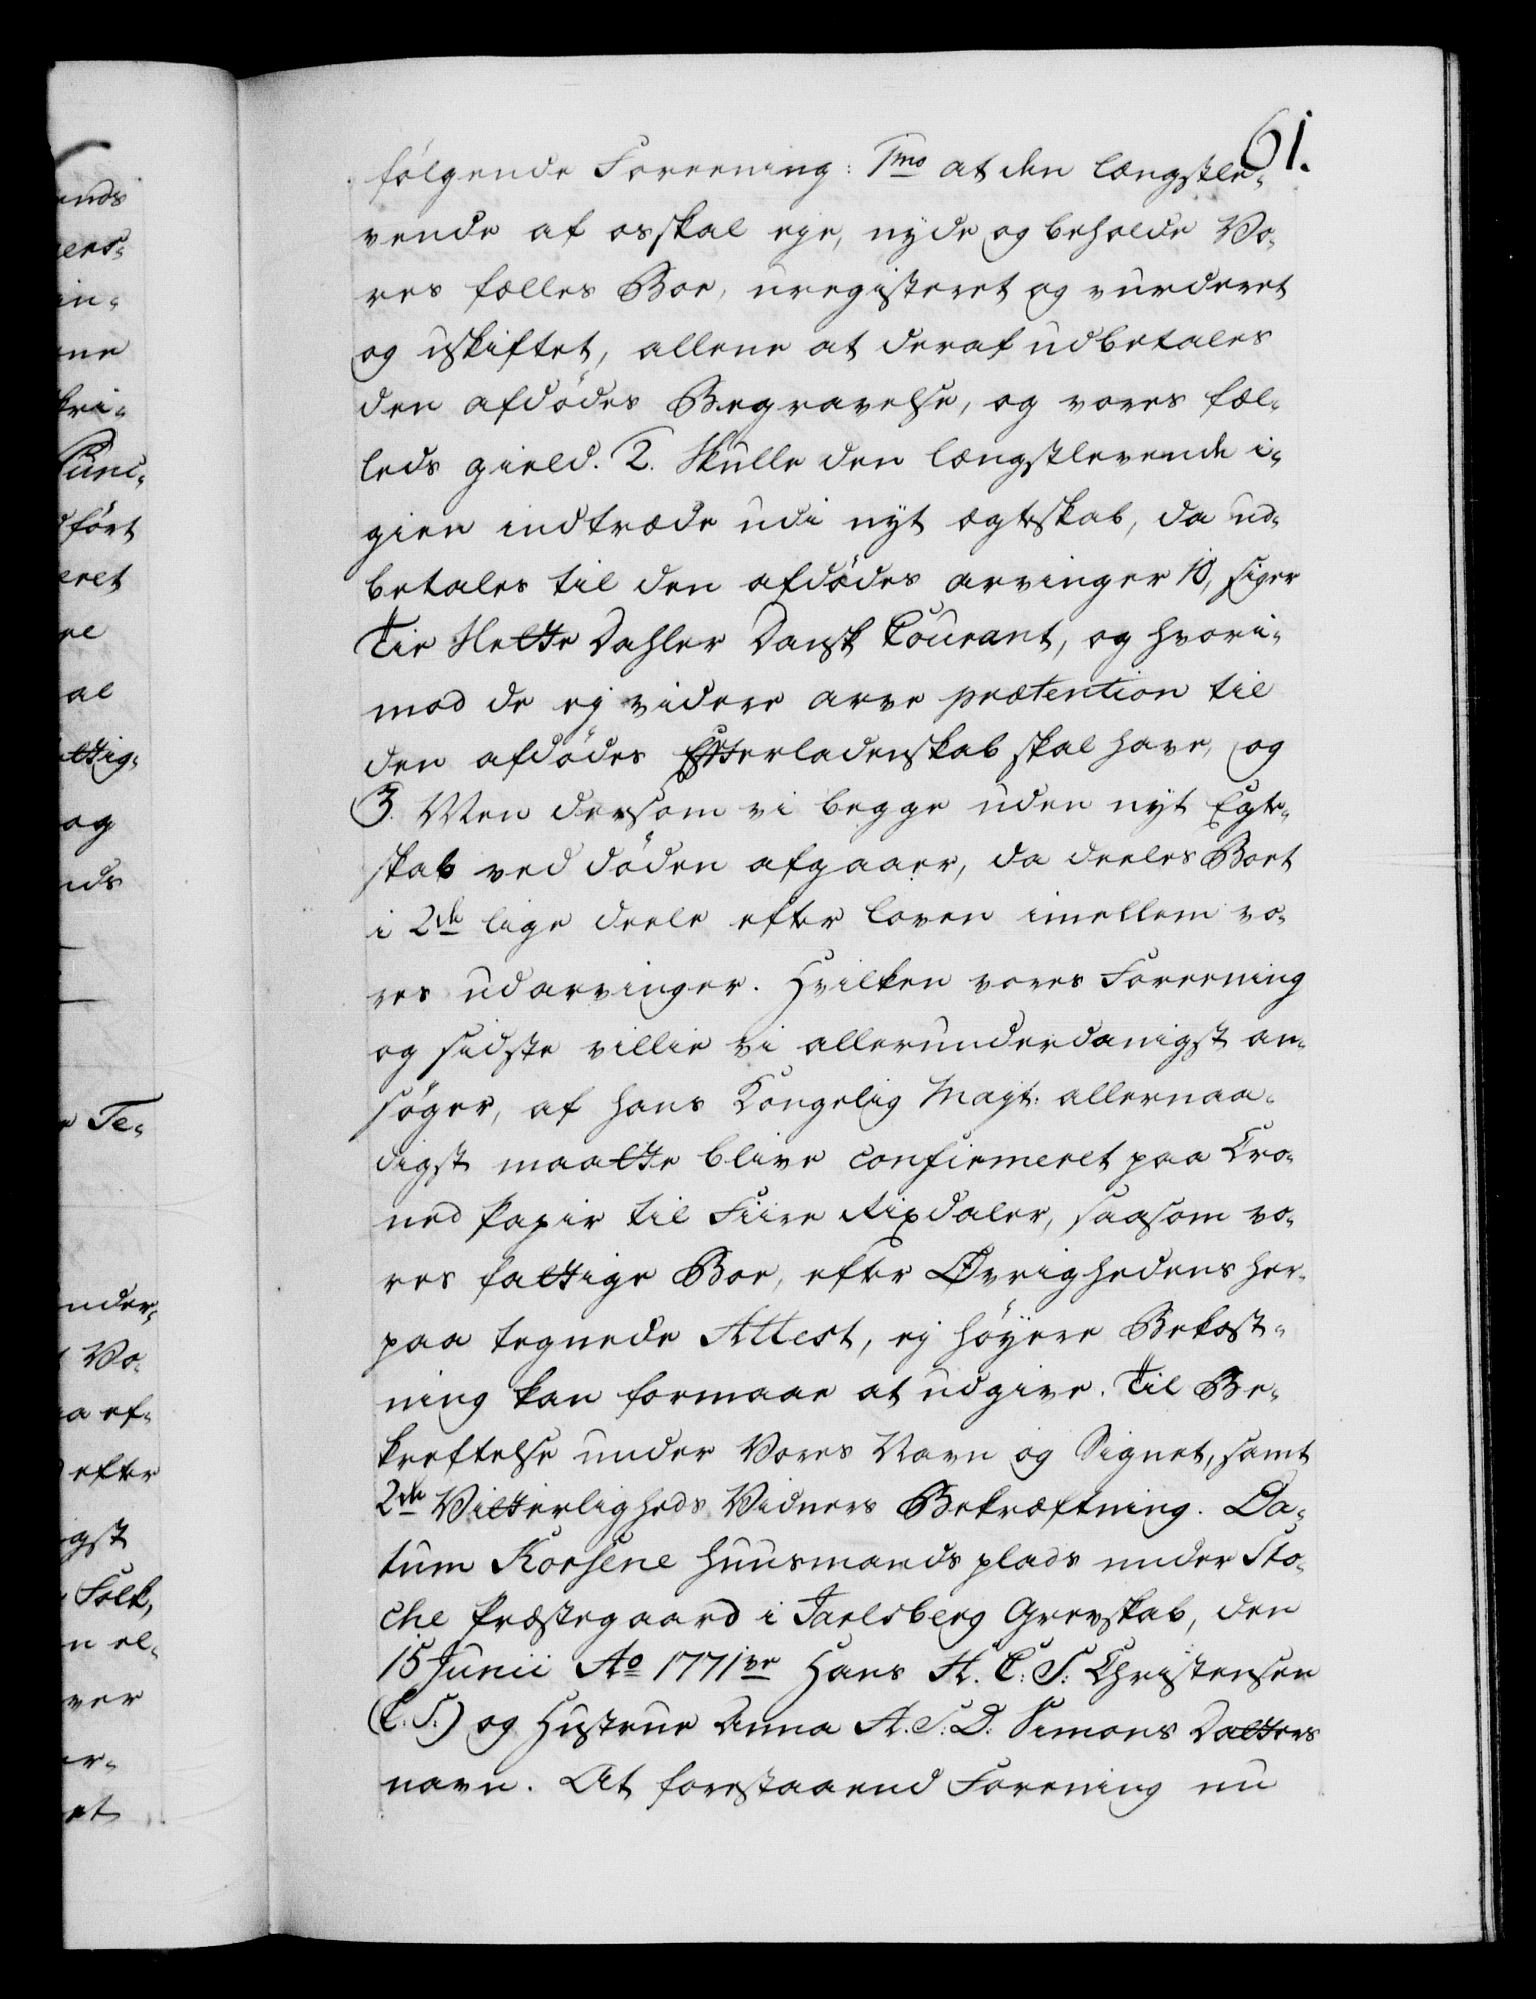 61.
følgende Foreening: 1mo at den længstle¬
vende af os skal eje, nyde og beholde Vo¬
res fælles Boe, uregisteret og vurderet
og uskiftet, allene at deraf udbetales
den afdödes Begravelse, og vores fæl¬
leds gield. 2. Skulle den længstlevende i¬
gien indtræde udi nyt ægteskab, da ud¬
betales til den afdödes arvinger 10, siger
Tie Slette Dahler Dansk Courant, og hvori¬
mod de ej videre arve prætention til
den afdödes Efterladenskab skal have, og
3. Men dersom vi begge uden nyt Egte¬
skab ved döden afgaaer, da deeles Boet
i 2de lige deele efter loven imellem vo¬
res udarvinger. Hvilken vores Foreening
og sidste villie vi allerunderdanigst an¬
söger, af hans Kongelig Mayt: allernaa¬
digst maatte blive confirmeret paa Cro¬
ned papir til Fiire Rixdaler, saasom vo¬
res fattige Boe, efter Øvrighedens her¬
paa tegnede Attest, ej höyere Bekost¬
ning kan formaae at udgive. Til Be¬
kreftelse under Vores Navn og Signet, samt
2de Vitterligheds Vidners Bekræftning. Da¬
tum Korsene huusmands plads under Sto¬
che Præstegaard i Jarlsberg Grevskab, den
15 Junii Ao 1771ve Hans H. C: S: Christensen
(L. S.) og Hustrue Anna A. S: D: Simons Datters
navn. At forestaaend Forening nu